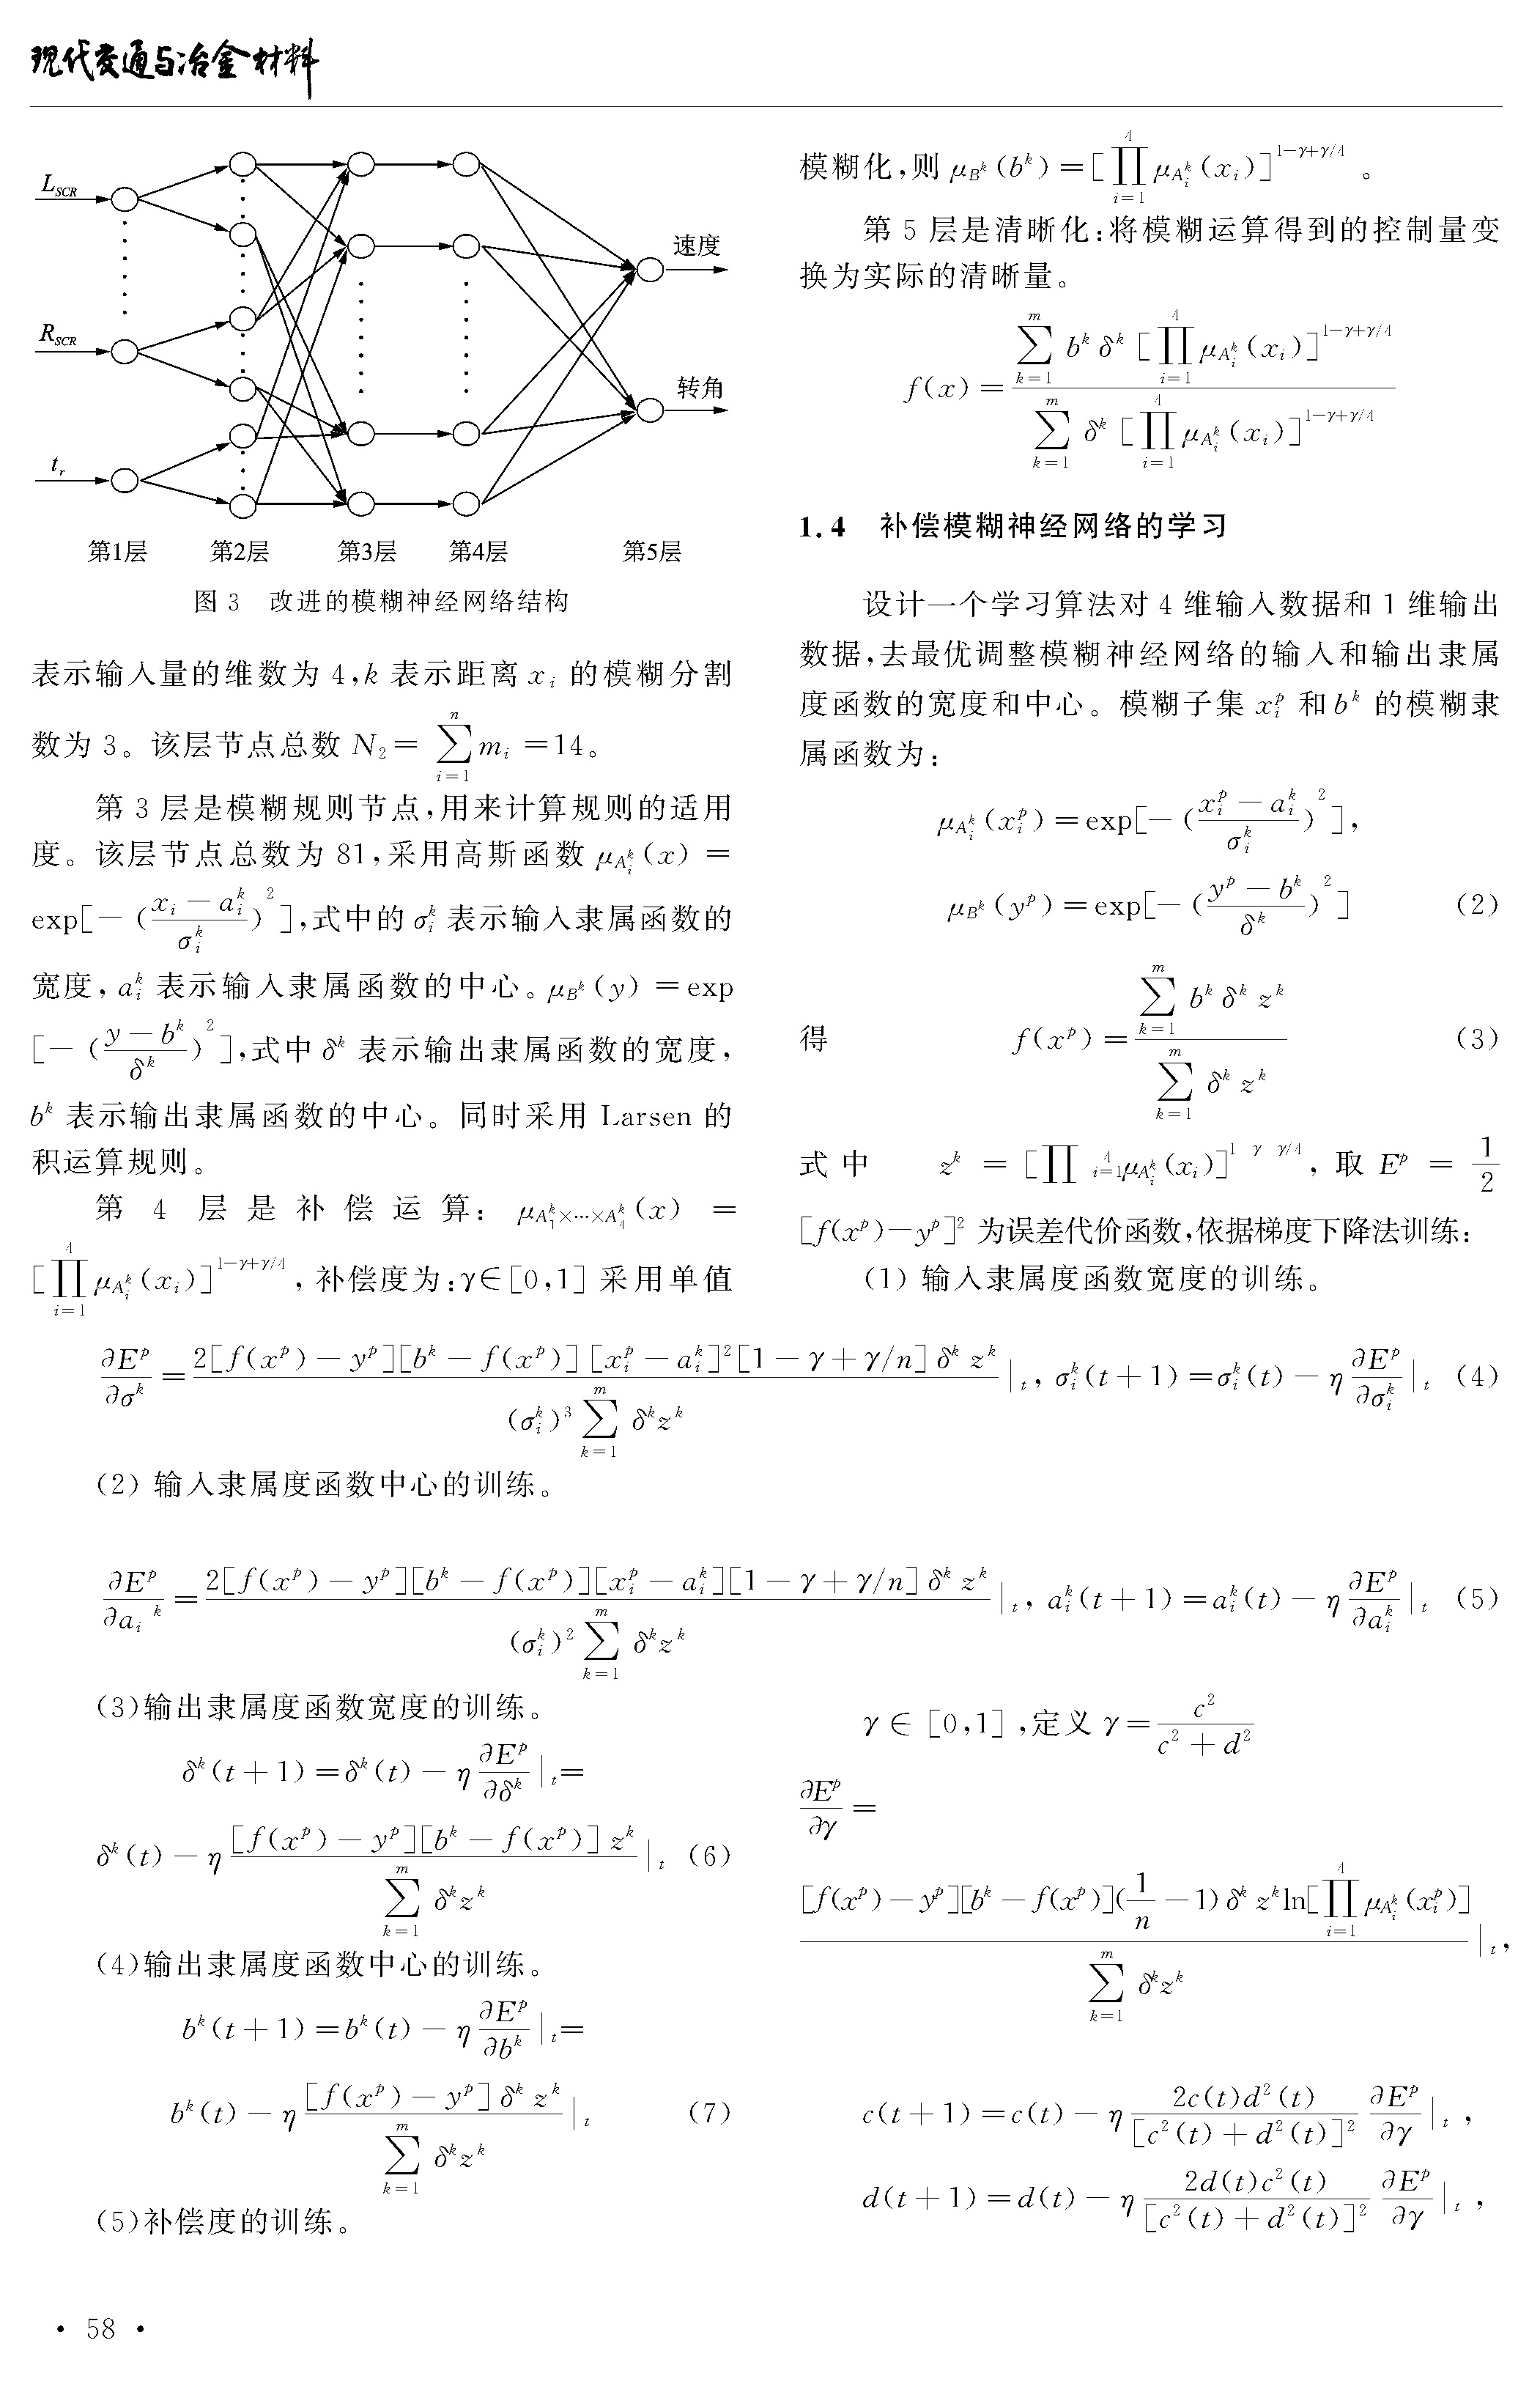 现代交通与冶金材料
L_{SCR}
R_{SCR}
t_r
速度
转角
第1层 第2层 第3层 第4层 第5层
图 3 改进的模糊神经网络结构
表示输入量的维数为 4,k 表示距离 x_i 的模糊分割
数为 3。该层节点总数 N_2=\sum_{i=1}^{n} m_i=14。
第 3 层是模糊规则节点,用来计算规则的适用
度。该层节点总数为 81,采用高斯函数 μ_{A_i^k}(x)=
exp[-(\frac{x_i-a_i^k}{σ_i^k})^2],式中的 σ_i^k 表示输入隶属函数的
宽度, a_i^k 表示输入隶属函数的中心。μ_{B^k}(y)=exp
[-(\frac{y-b^k}{δ^k})^2],式中 δ^k 表示输出隶属函数的宽度,
b^k 表示输出隶属函数的中心。同时采用 Larsen 的
积运算规则。
第 4 层是补偿运算: μ_{A_1^k×···×A_4^k}(x)=
[\prod_{i=1}^{4} μ_{A_i^k}(x_i)]^{1-γ+γ/4}, 补偿度为:γ∈[0,1] 采用单值
模糊化,则 μ_{B^k}(b^k)=[\prod_{i=1}^{4} μ_{A_i^k}(x_i)]^{1-γ+γ/4}。
第 5 层是清晰化:将模糊运算得到的控制量变
换为实际的清晰量。
f(x)=\frac{\sum_{k=1}^{m} b^k δ^k [\prod_{i=1}^{4} μ_{A_i^k}(x_i)]^{1-γ+γ/4}}{\sum_{k=1}^{m} δ^k [\prod_{i=1}^{4} μ_{A_i^k}(x_i)]^{1-γ+γ/4}}
1.4 补偿模糊神经网络的学习
设计一个学习算法对 4 维输入数据和 1 维输出
数据,去最优调整模糊神经网络的输入和输出隶属
度函数的宽度和中心。模糊子集 x_i^p 和 b^k 的模糊隶
属函数为:
μ_{A_i^k}(x_i^p)=exp[-(\frac{x_i^p-a_i^k}{σ_i^k})^2],
μ_{B^k}(y^p)=exp[-(\frac{y^p-b^k}{δ^k})^2] (2)
得 f(x^p)=\frac{\sum_{k=1}^{m} b^k δ^k z^k}{\sum_{k=1}^{m} δ^k z^k} (3)
式中 z^k = [\prod_{i=1}^{4} μ_{A_i^k}(x_i)]^{1 γ γ/4}, 取 E^p = \frac{1}{2}
[f(x^p)-y^p]^2 为误差代价函数,依据梯度下降法训练:
(1) 输入隶属度函数宽度的训练。
\frac{∂E^p}{∂σ^k}=\frac{2[f(x^p)-y^p][b^k-f(x^p)][x_i^p-a_i^k]^2[1-γ+γ/n]δ^k z^k}{(σ_i^k)^3 \sum_{k=1}^{m} δ^k z^k}|_t, σ_i^k(t+1)=σ_i^k(t)-η\frac{∂E^p}{∂σ_i^k}|_t (4)
(2) 输入隶属度函数中心的训练。
\frac{∂E^p}{∂a_i^k}=\frac{2[f(x^p)-y^p][b^k-f(x^p)][x_i^p-a_i^k][1-γ+γ/n]δ^k z^k}{(σ_i^k)^2 \sum_{k=1}^{m} δ^k z^k}|_t, a_i^k(t+1)=a_i^k(t)-η\frac{∂E^p}{∂a_i^k}|_t (5)
(3)输出隶属度函数宽度的训练。
δ^k(t+1)=δ^k(t)-η\frac{∂E^p}{∂δ^k}|_t=
δ^k(t)-η\frac{[f(x^p)-y^p][b^k-f(x^p)]z^k}{\sum_{k=1}^{m} δ^k z^k}|_t (6)
(4)输出隶属度函数中心的训练。
b^k(t+1)=b^k(t)-η\frac{∂E^p}{∂b^k}|_t=
b^k(t)-η\frac{[f(x^p)-y^p]δ^k z^k}{\sum_{k=1}^{m} δ^k z^k}|_t (7)
(5)补偿度的训练。
γ∈[0,1],定义 γ=\frac{c^2}{c^2+d^2}
\frac{∂E^p}{∂γ}=
\frac{[f(x^p)-y^p][b^k-f(x^p)](\frac{1}{n}-1)δ^k z^k ln[\prod_{i=1}^{4} μ_{A_i^k}(x_i^p)]}{\sum_{k=1}^{m} δ^k z^k}|_t,
c(t+1)=c(t)-η\frac{2c(t)d^2(t)}{[c^2(t)+d^2(t)]^2}\frac{∂E^p}{∂γ}|_t,
d(t+1)=d(t)-η\frac{2d(t)c^2(t)}{[c^2(t)+d^2(t)]^2}\frac{∂E^p}{∂γ}|_t,
· 58 ·